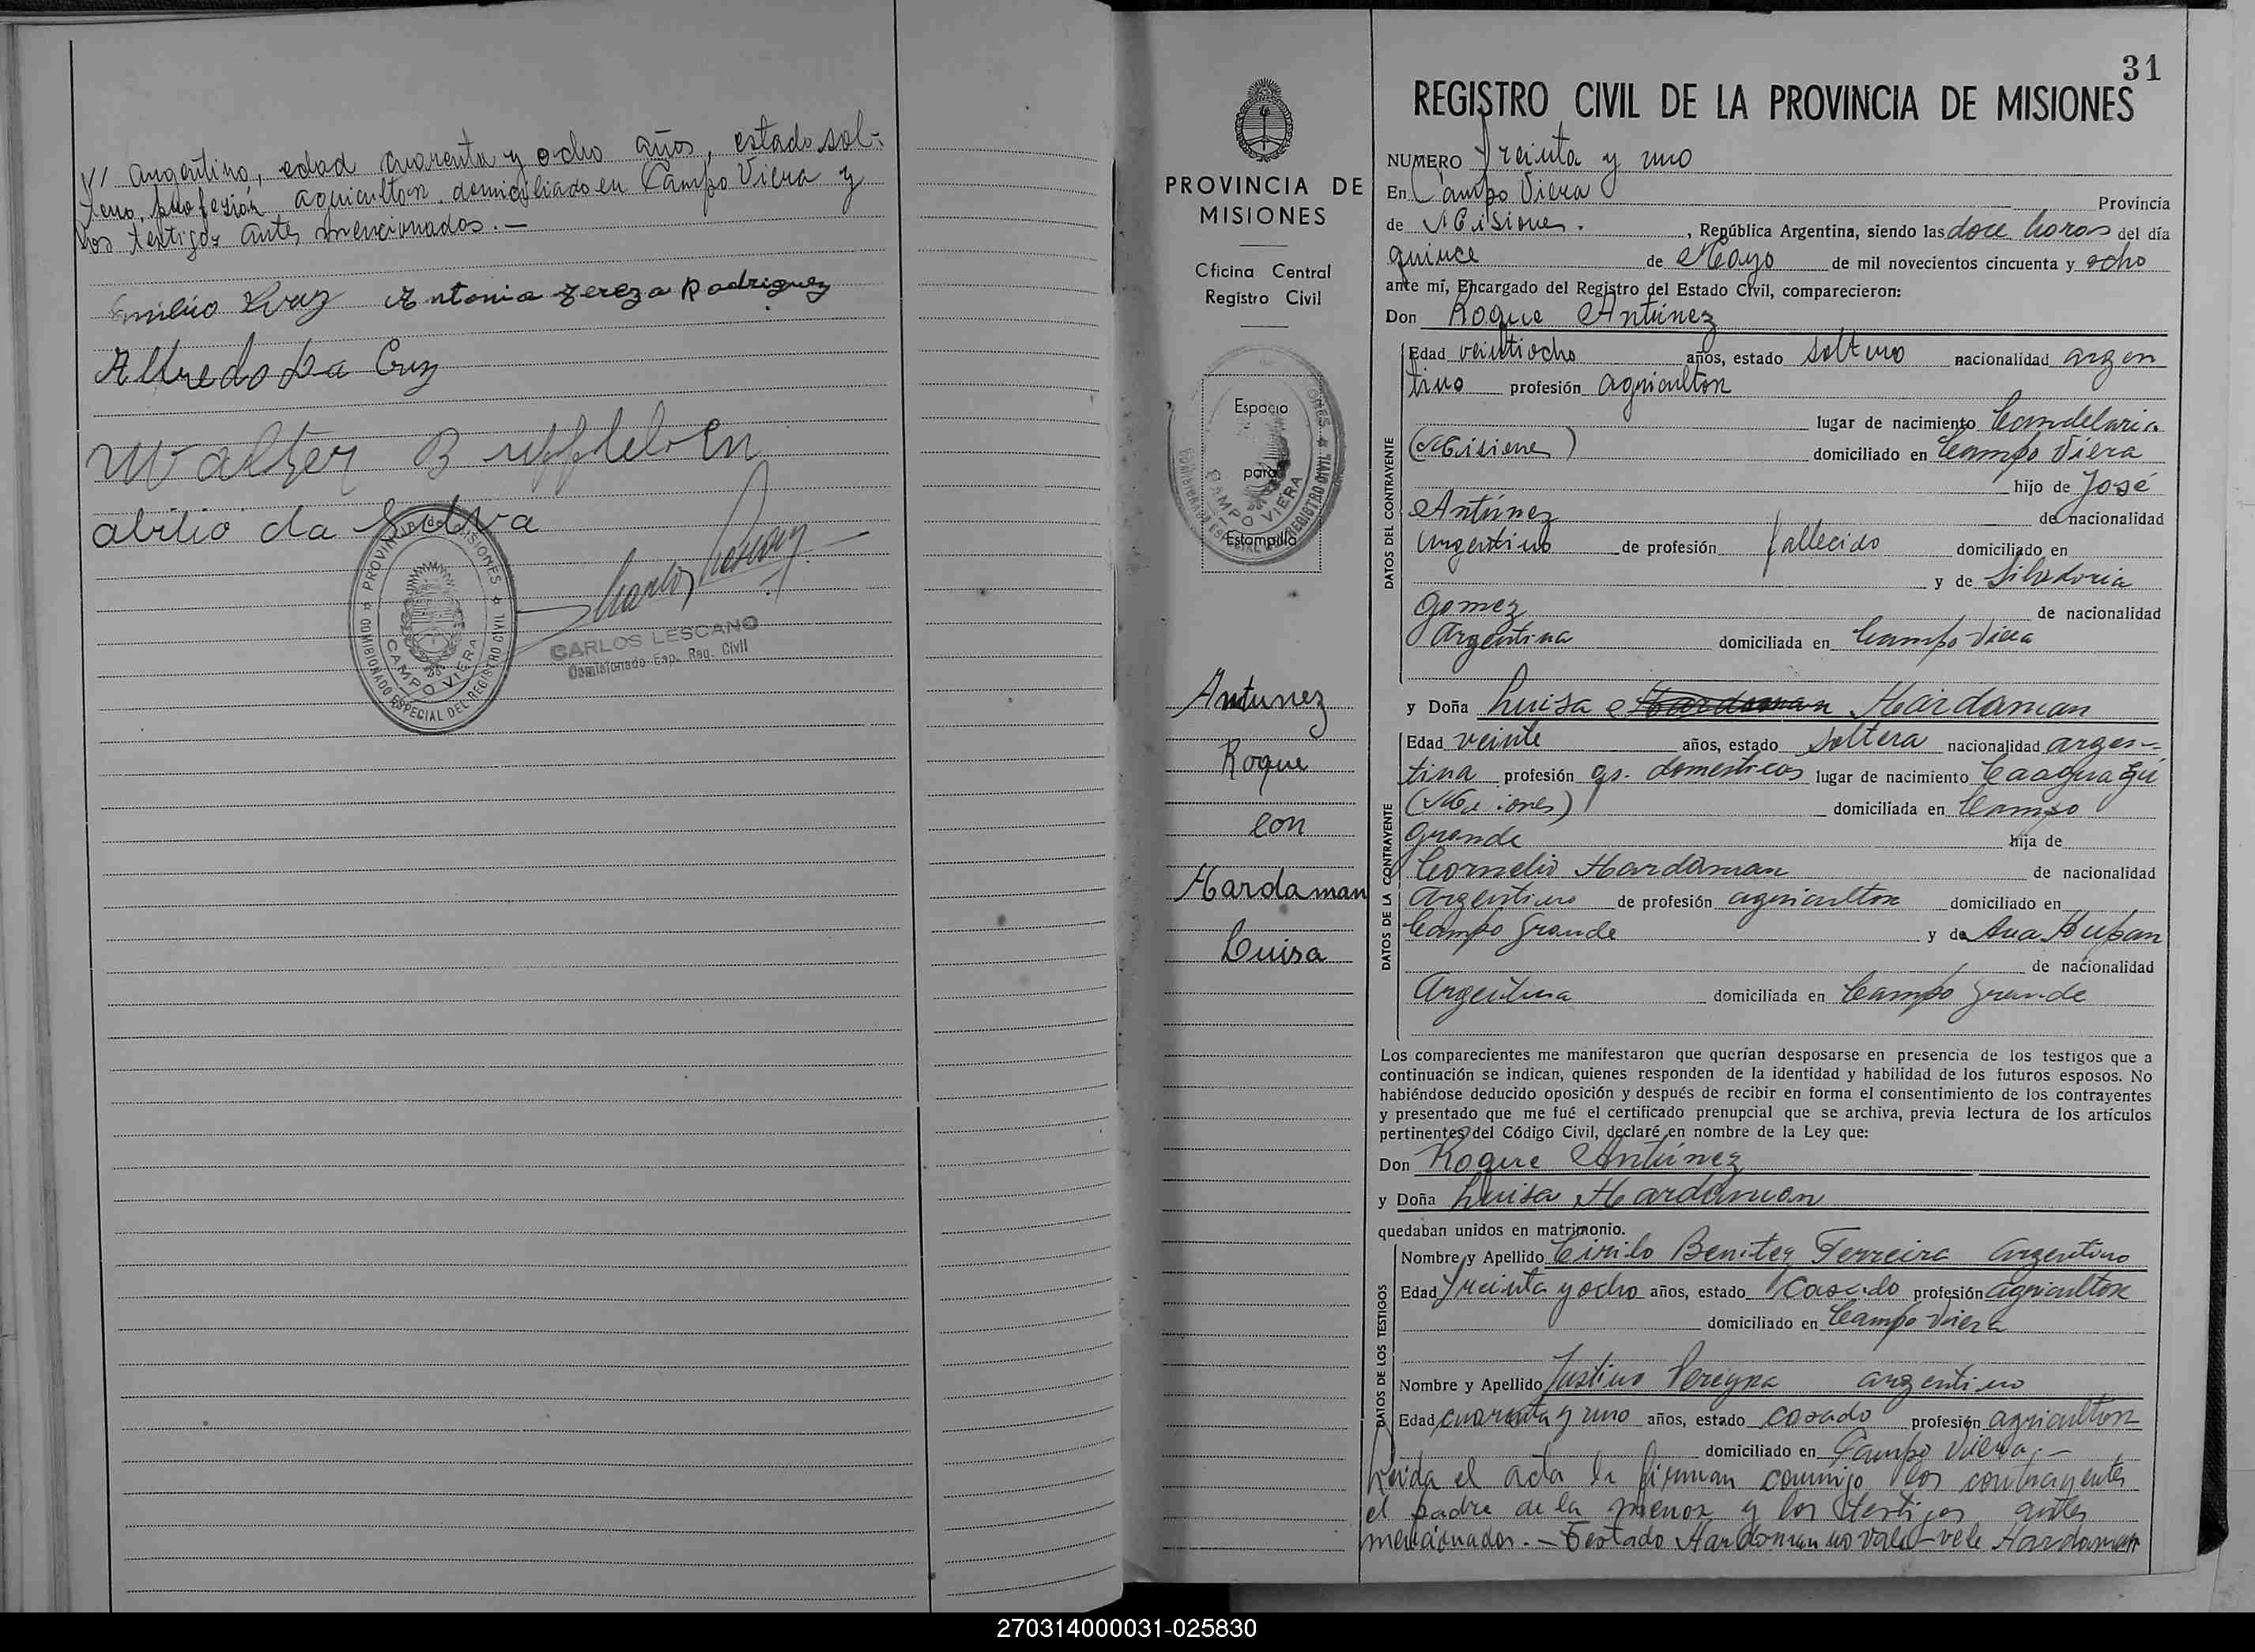 argentino, edad cuarenta y ocho años, estado sol-
tero, profesión agricultor domiciliado en Campo Viera y
los testigos antes mencionados.—
Emilio Antonia Tereza Rodriguez
Alfredo Da Cruz
Walter
abilio da Silva
PROVINCIA DE MISIONES
CAMPO VIERA
COMISIONADO ESPECIAL DEL REGISTRO CIVIL
CARLOS LESCANO
Comisionado Esp. Reg. Civil
PROVINCIA DE
MISIONES
Oficina Central
Registro Civil
Espacio
para
Estampilla
CAMPO VIERA
Antunez
Roque
con
Hardaman
Luisa
31
REGISTRO CIVIL DE LA PROVINCIA DE MISIONES
NUMERO Treinta y uno
En Campo Viera Provincia
de Misiones. , República Argentina, siendo las doce horas del día
quince de Mayo de mil novecientos cincuenta y ocho
ante mí, Encargado del Registro del Estado Civil, comparecieron:
Don Roque Antúnez
DATOS DEL CONTRAYENTE
Edad veintiocho años, estado soltero nacionalidad argen
tino profesión agricultor
lugar de nacimiento Candelaria
(Misiones) domiciliado en Campo Viera
hijo de José
Antúnez de nacionalidad
Argentino de profesión fallecido domiciliado en
y de Silvadoria
Gomez de nacionalidad
Argentina domiciliada en Campo Viera
y Doña Luisa Hardaman Hardaman
DATOS DE LA CONTRAYENTE
Edad veinte años, estado Soltera nacionalidad argen-
tina profesión qs. domesticos lugar de nacimiento Caaguazú
(Misiones) domiciliada en Campo
Grande hija de
Cornelio Hardaman de nacionalidad
Argentino de profesión agricultor domiciliado en
Campo Grande y de Ana
de nacionalidad
Argentina domiciliada en Campo Grande
Los comparecientes me manifestaron que querían desposarse en presencia de los testigos que a
continuación se indican, quienes responden de la identidad y habilidad de los futuros esposos. No
habiéndose deducido oposición y después de recibir en forma el consentimiento de los contrayentes
y presentado que me fué el certificado prenupcial que se archiva, previa lectura de los artículos
pertinentes del Código Civil, declaré en nombre de la Ley que:
Don Roque Antúnez
y Doña Luisa Hardaman
quedaban unidos en matrimonio.
DATOS DE LOS TESTIGOS
Nombre y Apellido Cirilo Benitez Ferreira Argentino
Edad Treinta y ocho años, estado Casado profesión agricultor
domiciliado en Campo Viera
Nombre y Apellido Justino Pereyra argentino
Edad cuarenta y uno años, estado casado profesión agricultor
domiciliado en Campo Viera.—
Leida el acta la firman conmigo los contrayentes
el padre de la menor y los testigos antes
mencionados.— Testado Hardoman no vale—vale Hardaman
270314000031-025830